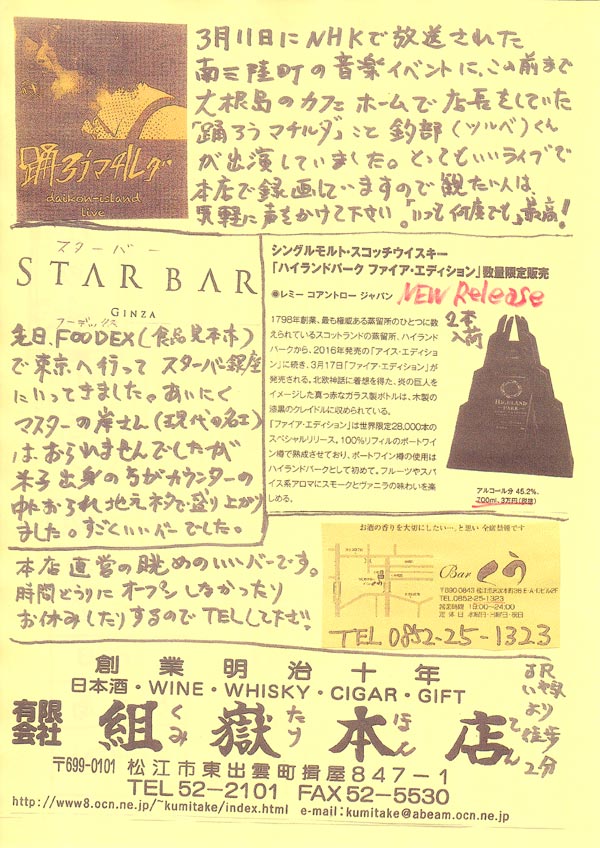 踊ろうマチルダ
daikon-island
live
3月11日にNHKで放送された
南三陸町の音楽イベントに、この前まで
大根島のカフェ ホームで店長をしていた
「踊ろうマチルダ」こと釣部(ツルベ)くん
が出演していました。とってもいいライブで
本店で録画していますので観たい人は、
気軽に声をかけて下さい。「いつも何度でも」最高!
スターバー
STAR BAR
GINZA
フーデックス
先日、FOODEX(食品見本市)
で東京へ行って スターバー銀座
にいってきました。あいにく
マスターの岸さん(現代の名工)
はおられませんでしたが
米子出身の方がカウンターの
中におられ地元ネタで盛り上がり
ました。すごくいいバーでした。
シングルモルト・スコッチウイスキー
「ハイランドパーク ファイア・エディション」数量限定販売
●レミー コアントロー ジャパン
NEW Release
2本
入荷
1798年創業、最も権威ある蒸留所のひとつに数
えられているスコットランドの蒸留所、ハイランド
パークから、2016年発売の「アイス・エディショ
ン」に続き、3月17日「ファイア・エディション」が
発売される。北欧神話に着想を得た、炎の巨人を
イメージした真っ赤なガラス製ボトルは、木製の
漆黒のクレイドルに収められている。
「ファイア・エディション」は世界限定28,000本の
スペシャルリリース。100%リフィルのポートワイ
ン樽で熟成させており、ポートワイン樽の使用は
ハイランドパークとして初めて。フルーツやスパ
イス系アロマにスモークとヴァニラの味わいを楽
しめる。
HIGHLAND
PARK
アルコール分 45.2%、
700ml、3万円(税抜)
本店直営の眺めのいいバーです。
時間どうりにオープンしなかったり
お休みしたりするのでTELして下さい
お酒の香りを大切にしたい…、と思い 全席禁煙です
Bar くう
TEL.0852-25-1323
営業時間 19:00〜24:00
TEL 0852-25-1323
創業明治十年
日本酒・WINE・WHISKY・CIGAR・GIFT
有限
会社
組嶽本店
くみ たけ ほん てん
JR
いや駅
より
徒歩
2分
〒699-0101 松江市東出雲町揖屋847-1
TEL 52-2101 FAX 52-5530
http://www8.ocn.ne.jp/~kumitake/index.html e-mail:kumitake@abeam.ocn.ne.jp